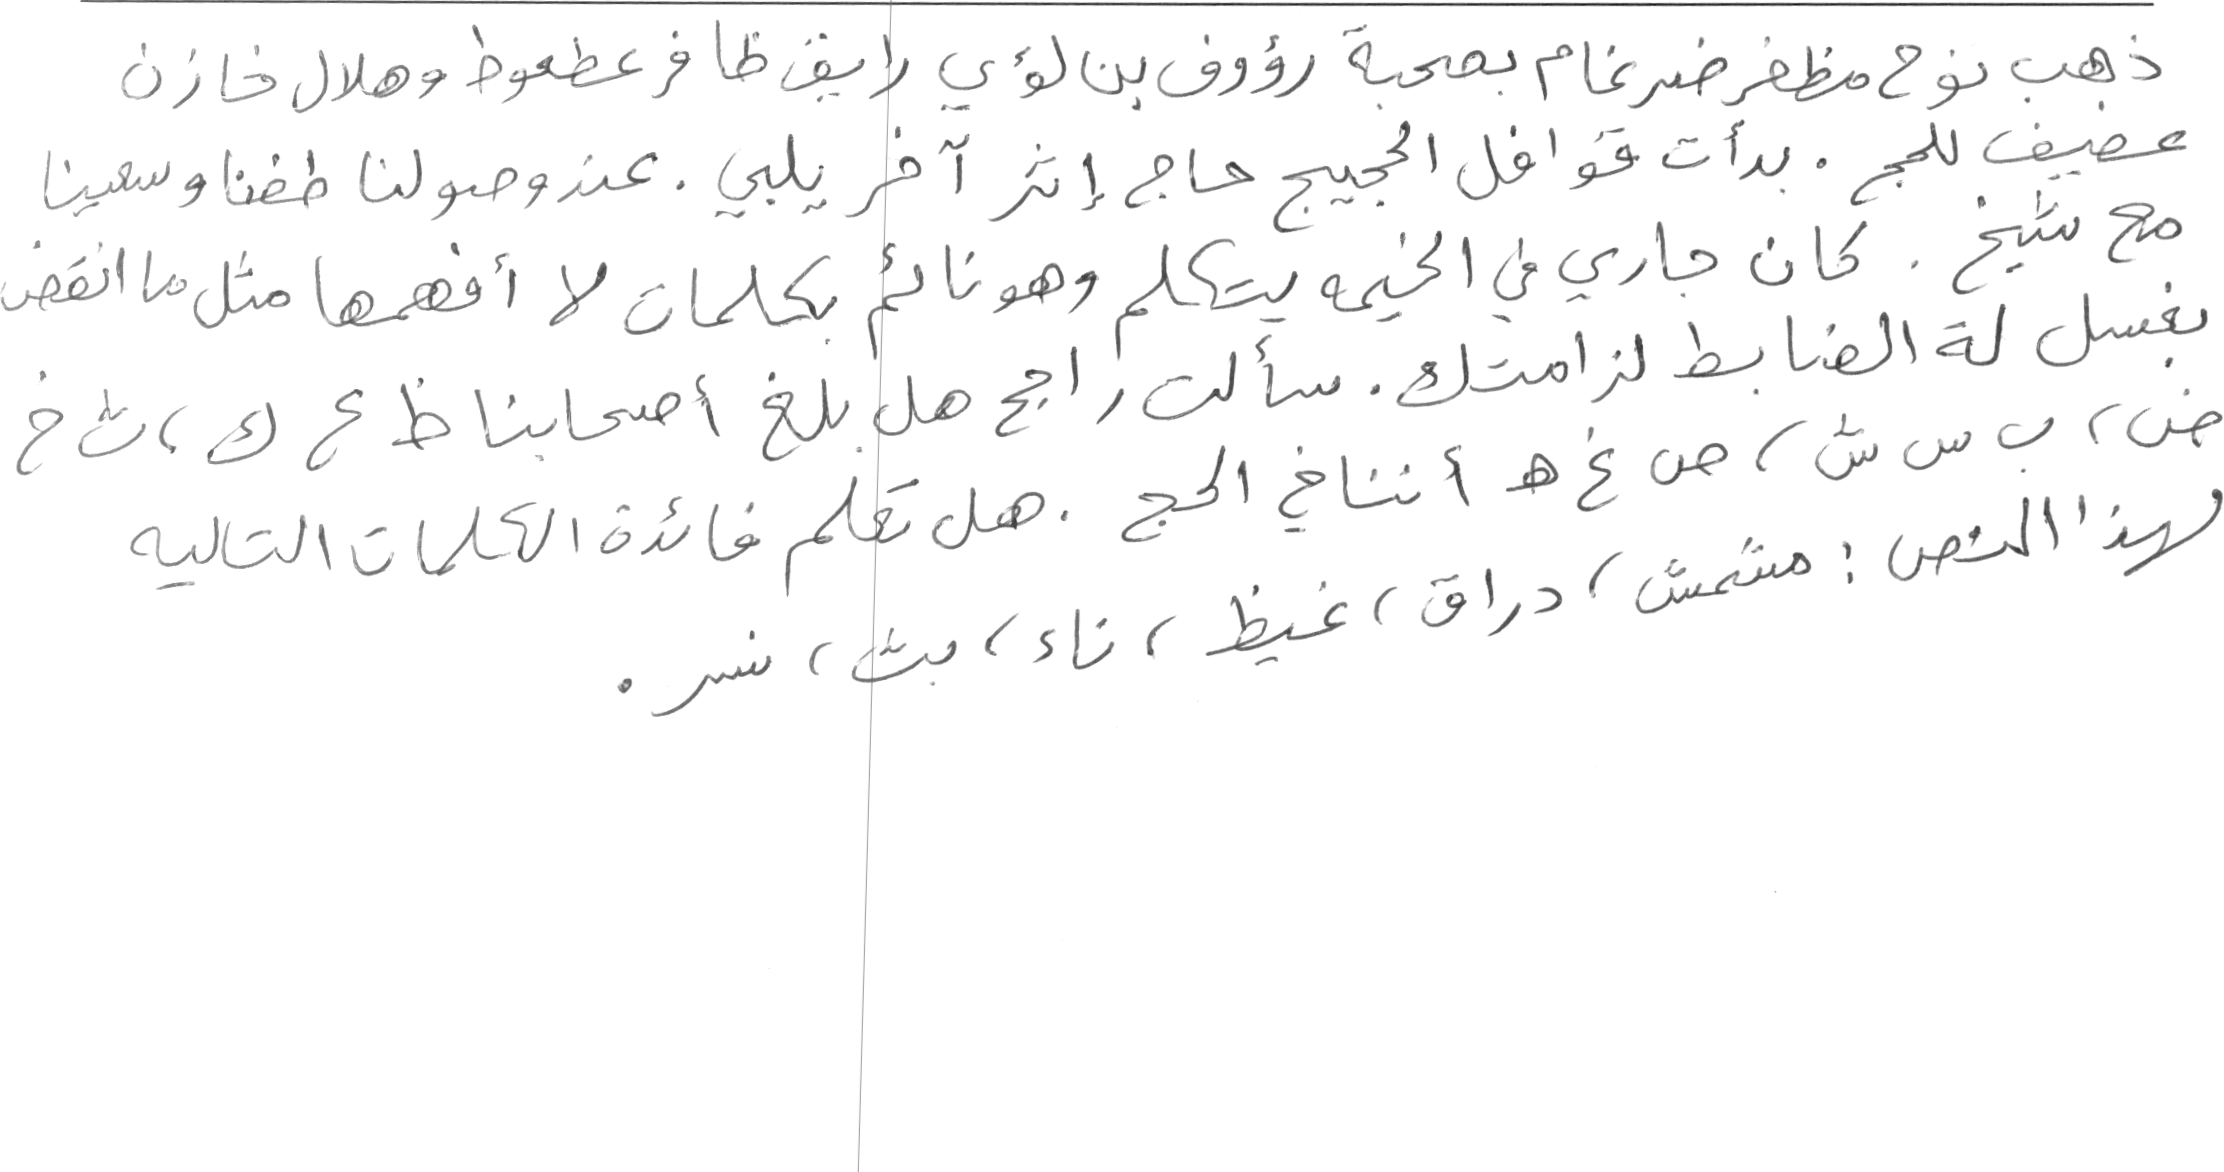 ذهب نوح مظفر ضرغام بصحبة رؤوف بن لؤي رايق ظافر عطعوط وهلال خازن
عضيف للحج . بدأت قوافل الحجيج حاج إثر آخر يلبي . عند وصولنا طفنا وسعينا
مع شيخ . كان جاري في الخيمه يتكلم وهو نائم بكلمات لا أفهمها مثل ما انقض
بغسل لة الضابط لزامتك . سألت راجح هل بلغ أصحابنا ظ ع ك ، ث خ
ض ، ب س ش ، ص غ ه أننا في الحج . هل تعلم فائدة الكلمات التاليه
لهذا النص : مشمش ، دراق ، غيظ ، ناء ، بث ، نسر .